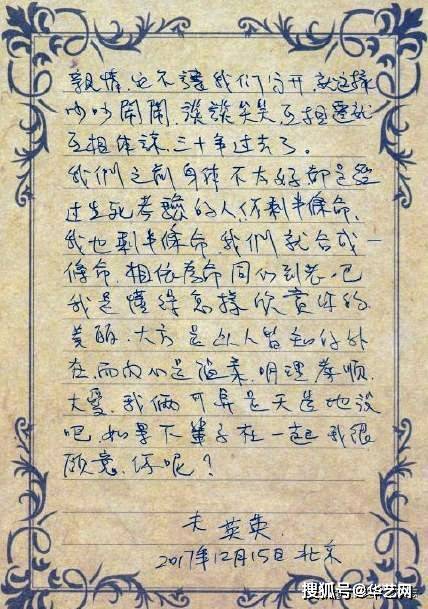 親情,它不讓我们分開.就这樣
吵吵鬧鬧.談談笑笑.互相遷就
互相体諒.三十年过去了。
我們之前身体不太好都是經
过生死考驗的人.你剩半條命.
我也剩半條命.我們就合成一
條命.相依為命同偕到老.吧
我是懂得怎樣欣賞你的
美丽.大方是众人皆知的外
在.而内心是溫柔.明理孝順.
大愛.我倆可算是天造地設
吧.如果下輩子在一起我很
願意.你呢?
夫 英英.
2017年12月15日 北京
搜狐号@华艺网